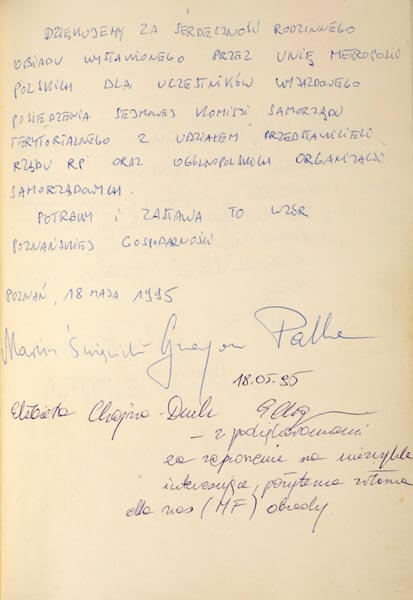 DZIĘKUJEMY ZA SERDECZNOŚĆ RODZINNEGO
OBIADU WYSTAWIONEGO PRZEZ UNIĘ METROPOLII
POLSKICH DLA UCZESTNIKÓW WYJAZDOWEGO
POSIEDZENIA SEJMOWEJ KOMISJI SAMORZĄDU
TERYTORIALNEGO Z UDZIAŁEM PRZEDSTAWICIELI
RZĄDU RP ORAZ OGÓLNOPOLSKICH ORGANIZACJI
SAMORZĄDOWYCH.
POTRAWY I ZASTAWA TO WZÓR
POZNAŃSKIEJ GOSPODARNOŚCI
POZNAŃ, 18 MAJA 1995
Marcin Święcicki Grzegorz Palka
18.05.95
Elżbieta Chojna-Duch
– z podziękowaniami
za zaproszenie na niezwykle
interesujące, pożyteczne
dla nas (MF) obrady.